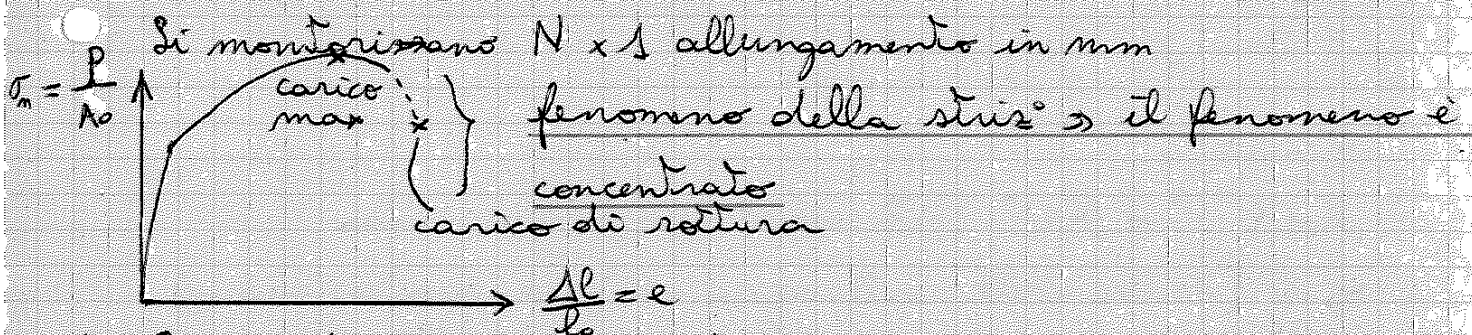 Si monitorizzano N x 1 allungamento in mm
σₙ = P/A₀
carico
max
fenomeno della striz° => il fenomeno è
concentrato
carico di rottura
Δl/l₀ = e